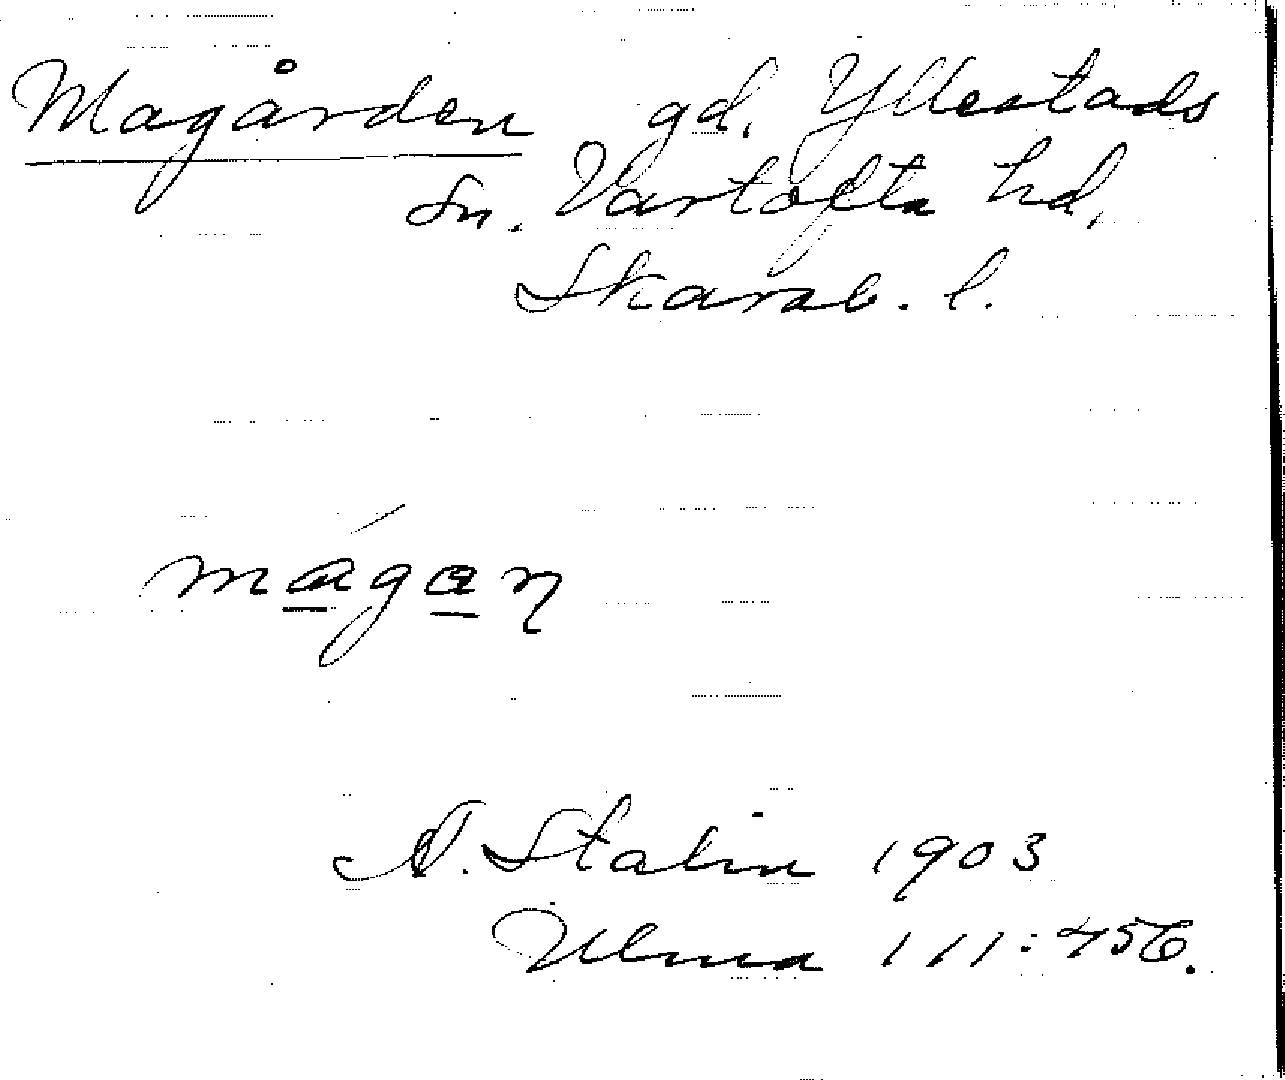 Magården gd. Yllestads
sn. Vartofta hd,
Skarab. l.
mágan
A. Stalin 1903
Ulma 111:456.